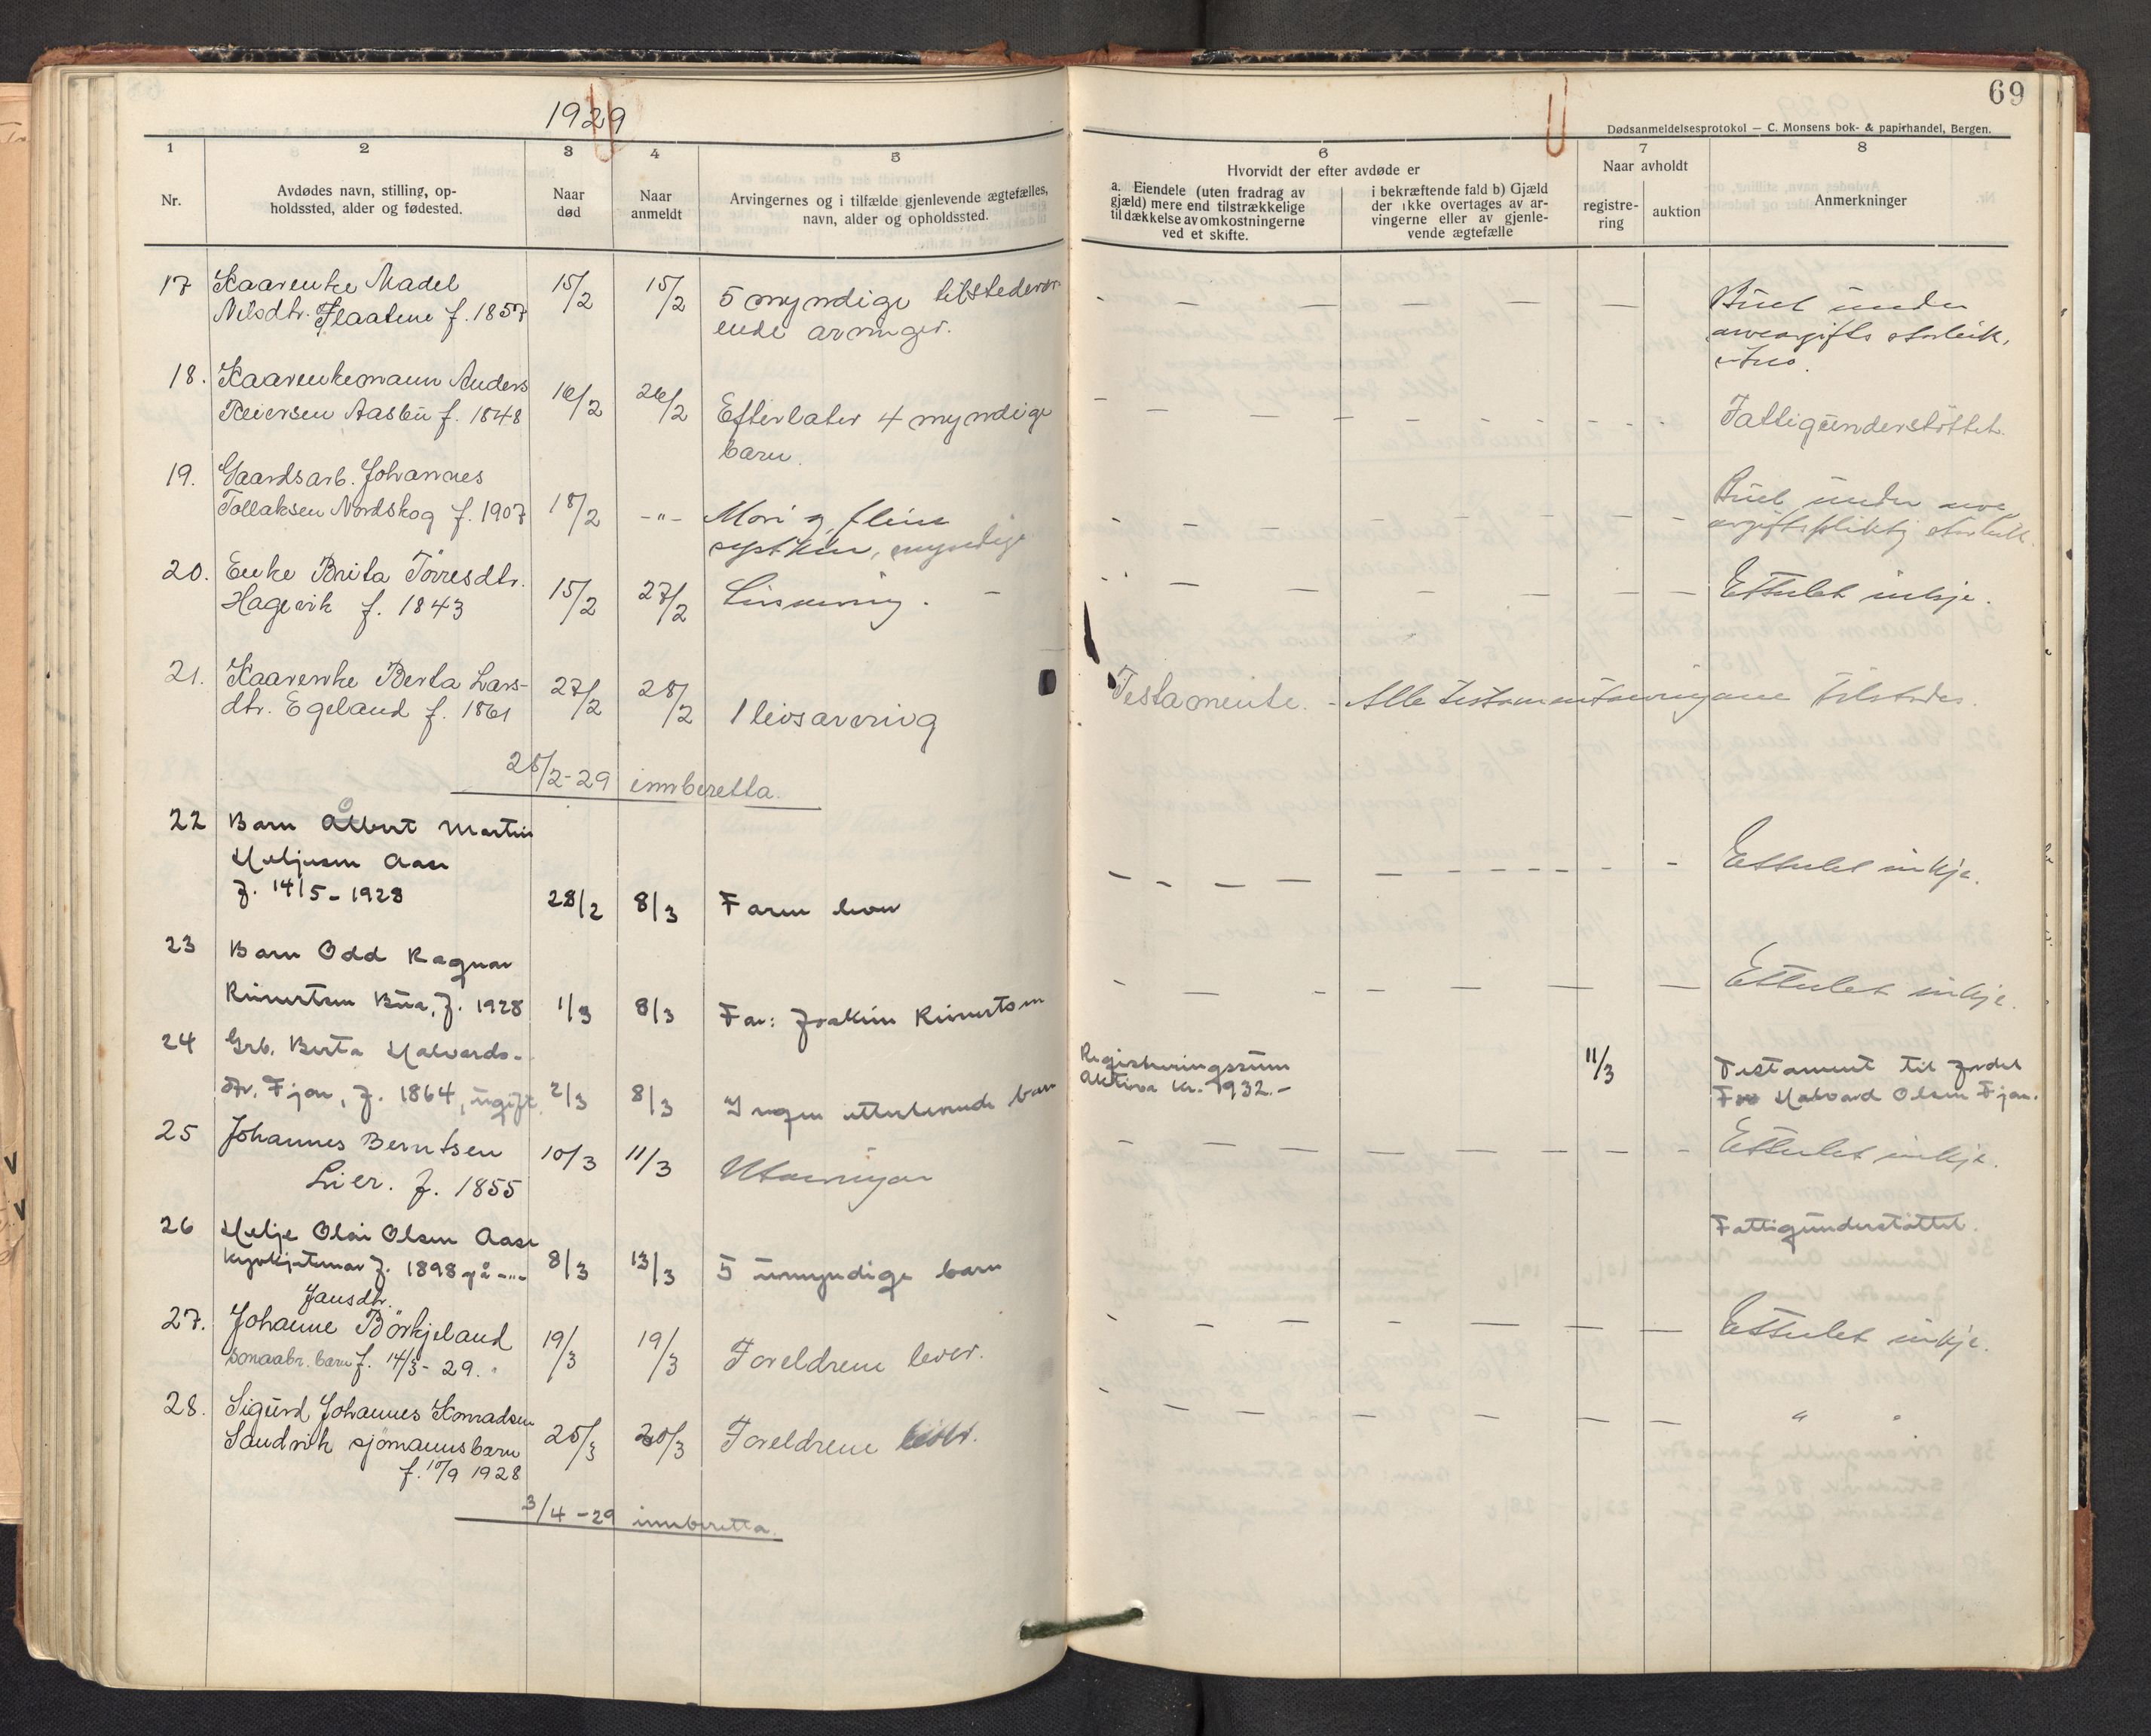 1929
69
Dødsanmeldelsesprotokol — C. Monsens bok- & papirhandel, Bergen.
1
2
3
4
5
6
7
8
Nr.
Avdødes navn, stilling, op-
holdssted, alder og fødested.
Naar
død
Naar
anmeldt
Arvingernes og i tilfælde gjenlevende ægtefælles,
navn, alder og opholdssted.
Hvorvidt der efter avdøde er
a. Eiendele (uten fradrag av
gjæld) mere end tilstrækkelige
til dækkelse av omkostningerne
ved et skifte.
i bekræftende fald b) Gjæld
der ikke overtages av ar-
vingerne eller av gjenle-
vende ægtefælle
Naar avholdt
registre-
ring
auktion
Anmerkninger
17 Kaarenke Madel 15/2 15/2 5 myndige tilstedevær-
Nilsdtr. Flaatene f. 1857 ende arvinger.
Buet under
arveavgifts
18. Kaarenkemann Anders 16/2 26/2 Efterlater 4 myndige
Aasbu f. 1848 barn.
Fattigunderstöttet.
19. Gaardsarb. Johannes
Tollaksen Nordskog f. 1907 18/2 -"- Mor og fleire
sysken, myndige
Buet under arve
avgiftspliktig
20. Enke Brita Törresdtr. 15/2 27/2 Livsarving. -
Hagevik f. 1843
Etterlet inkje.
21. Kaarenke Berta Lars- 27/2 28/2 1 livsarving
dtr. Egeland f. 1861
Testamente. - Alle testamentarvingane tilstades.
28/2-29 innberetta.
22 Barn Albert Martin
Heljesen Aase
f. 14/5-1928 28/2 8/3 Faren lever
Etterlet inkje.
23 Barn Odd Ragnar
Reinertsen Bua, f. 1928 1/3 8/3 Far: Joakim Reinertsen
Etterlet inkje.
24 Grb. Berta Halvards-
dtr. Fjon, f. 1864, ugift. 2/3 8/3 Ingen etterlevende barn
Registreringssum
Aktiva kr. 1932.-
11/3
Testament til fordel
For Halvard Olsen Fjon.
25 Johannes Berntsen 10/3 11/3 Utarvingar
Lier. f. 1855
Etterlet inkje.
26 Helje Olai Olsen Aase
f. 1898 på -"- 8/3 13/3 5 umyndige barn
Fattigunderstöttet.
Jansdtr.
27. Johanne Börkjeland 19/3 19/3 Foreldrene lever.
barn f. 14/3-29.
Etterlet inkje.
28. Sigurd Johannes Konradsen 25/3 20/3 Foreldrene lever.
Sandvik sjömannsbarn
f. 10/9 1928
" "
3/4-29 innberetta.